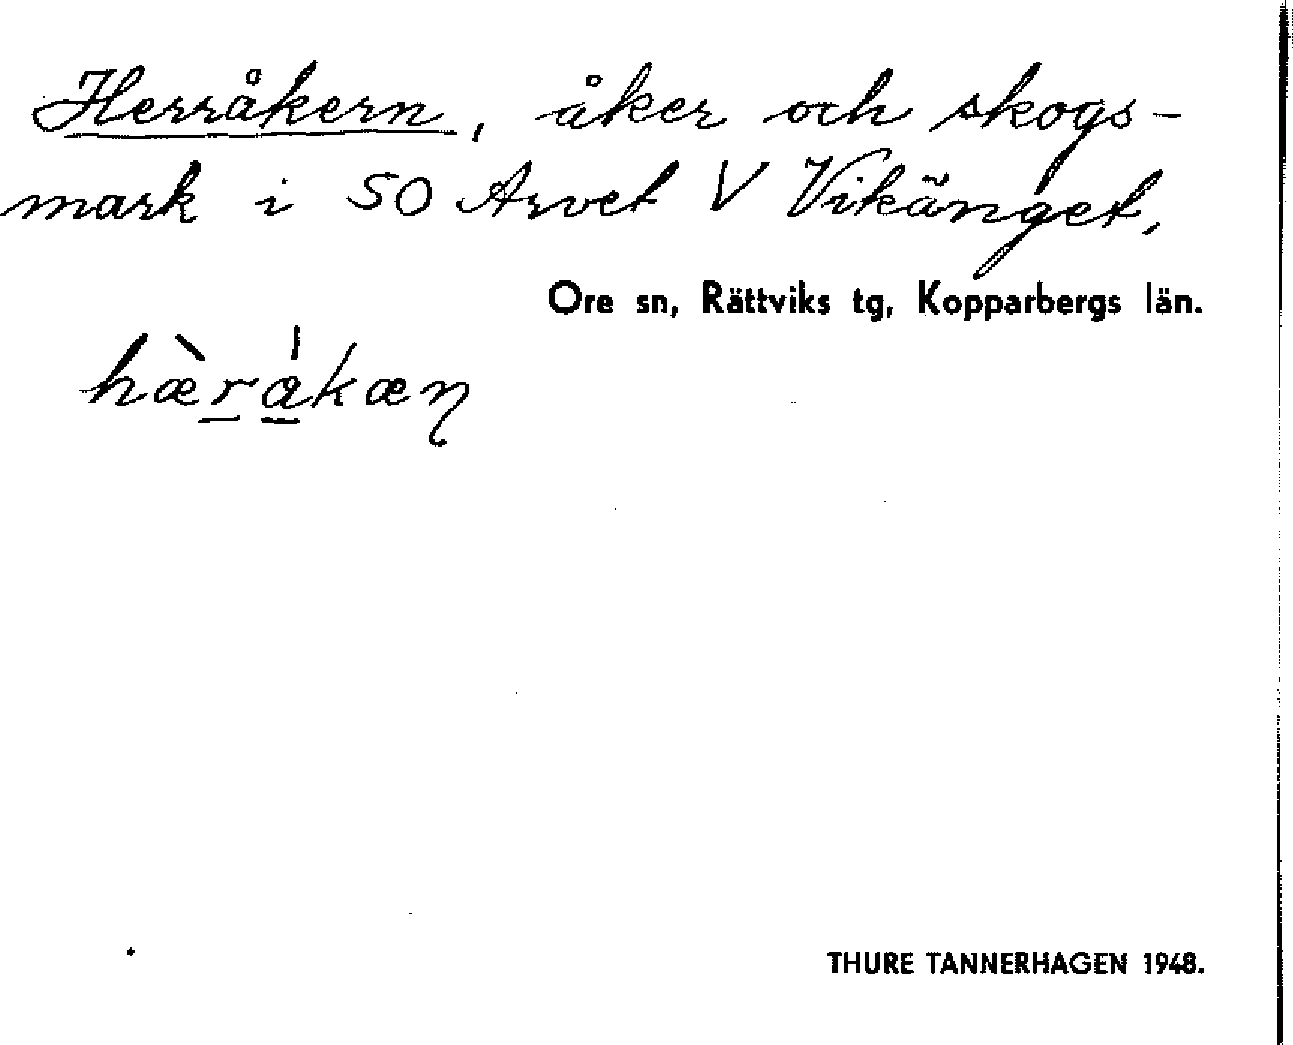 Herråkern, åker och skogs-
mark i SO Arvet V Vikänget,
Ore sn, Rättviks tg, Kopparbergs län.
hæ̀rå̍kæɳ
THURE TANNERHAGEN 1948.